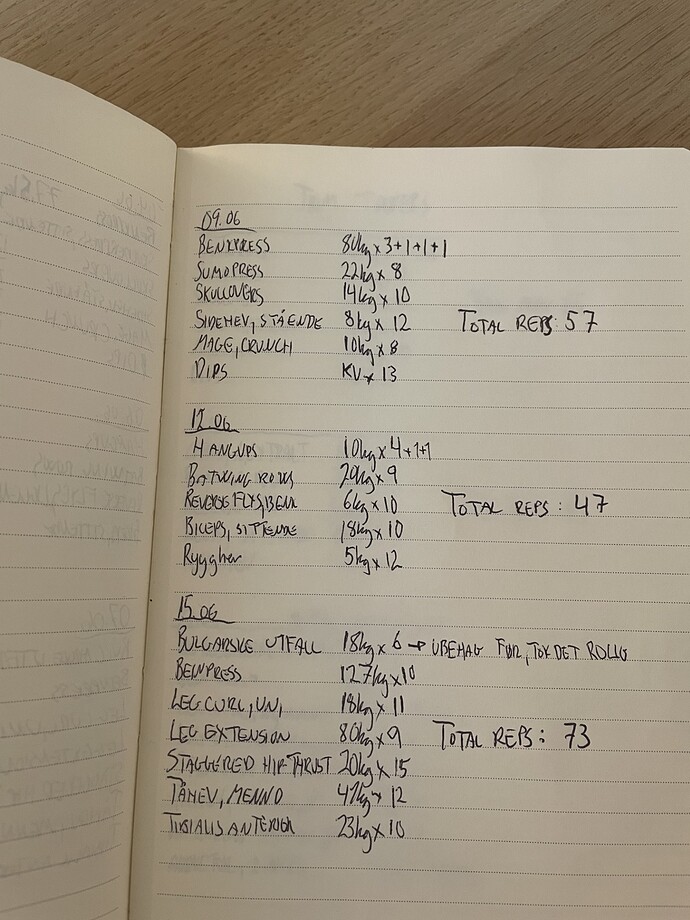 09.06
BENKPRESS 80kg x 3+1+1+1
SUMOPRESS 22kg x 8
SKULLOVERS 14kg x 10
SIDEHEV, STÅENDE 8kg x 12 TOTAL REPS: 57
MAGE, CRUNCH 10kg x 8
DIPS KV x 13
12.06
HANGUPS 10kg x 4+1+1
BATWING ROWS 20kg x 9
REVERSE FLYS, BENK 6kg x 10 TOTAL REPS: 47
BICEPS, SITTENDE 18kg x 10
Rygghev 5kg x 12
15.06
BULGARSKE UTFALL 18kg x 6 → UBEHAG FØR, TOK DET ROLIG
BEINPRESS 127kg x 10
LEG CURL, UNI, 18kg x 11
LEG EXTENSION 80kg x 9 TOTAL REPS: 73
STAGGERED HIP THRUST 20kg x 15
TÅHEV, MENNO x 12
TIBIALIS ANTERIOR 23kg x 10